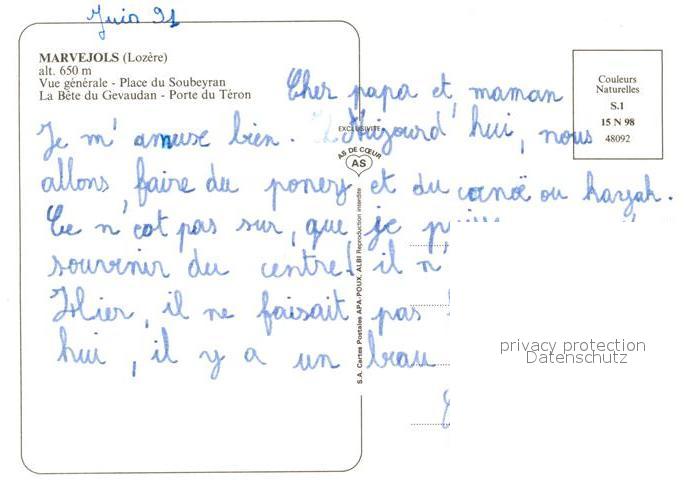 Juin 91
MARVEJOLS (Lozère)
alt. 650 m
Vue générale - Place du Soubeyran
La Bête du Gevaudan - Porte du Téron
Couleurs
Naturelles
S.1
15 N 98
48092
EXCLUSIVITE
AS DE CŒUR
AS
S.A. Cartes Postales APA-POUX, ALBI Reproduction interdite
Cher papa et maman
Je m'amuse bien. Aujourd'hui, nous
allons faire du poney et du canoë ou kayak.
Ce n'est pas sur, que je
souvenir du centre! il n'
Hier, il ne faisait pas
hui, il y a un beau
privacy protection
Datenschutz